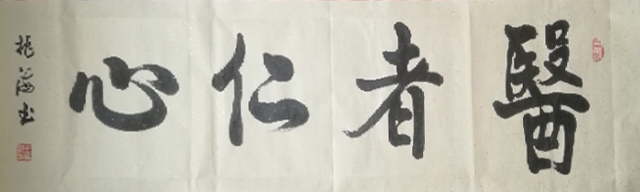 醫者仁心
振海书